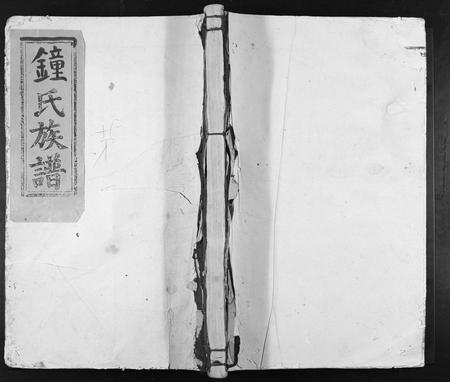 鐘氏族譜